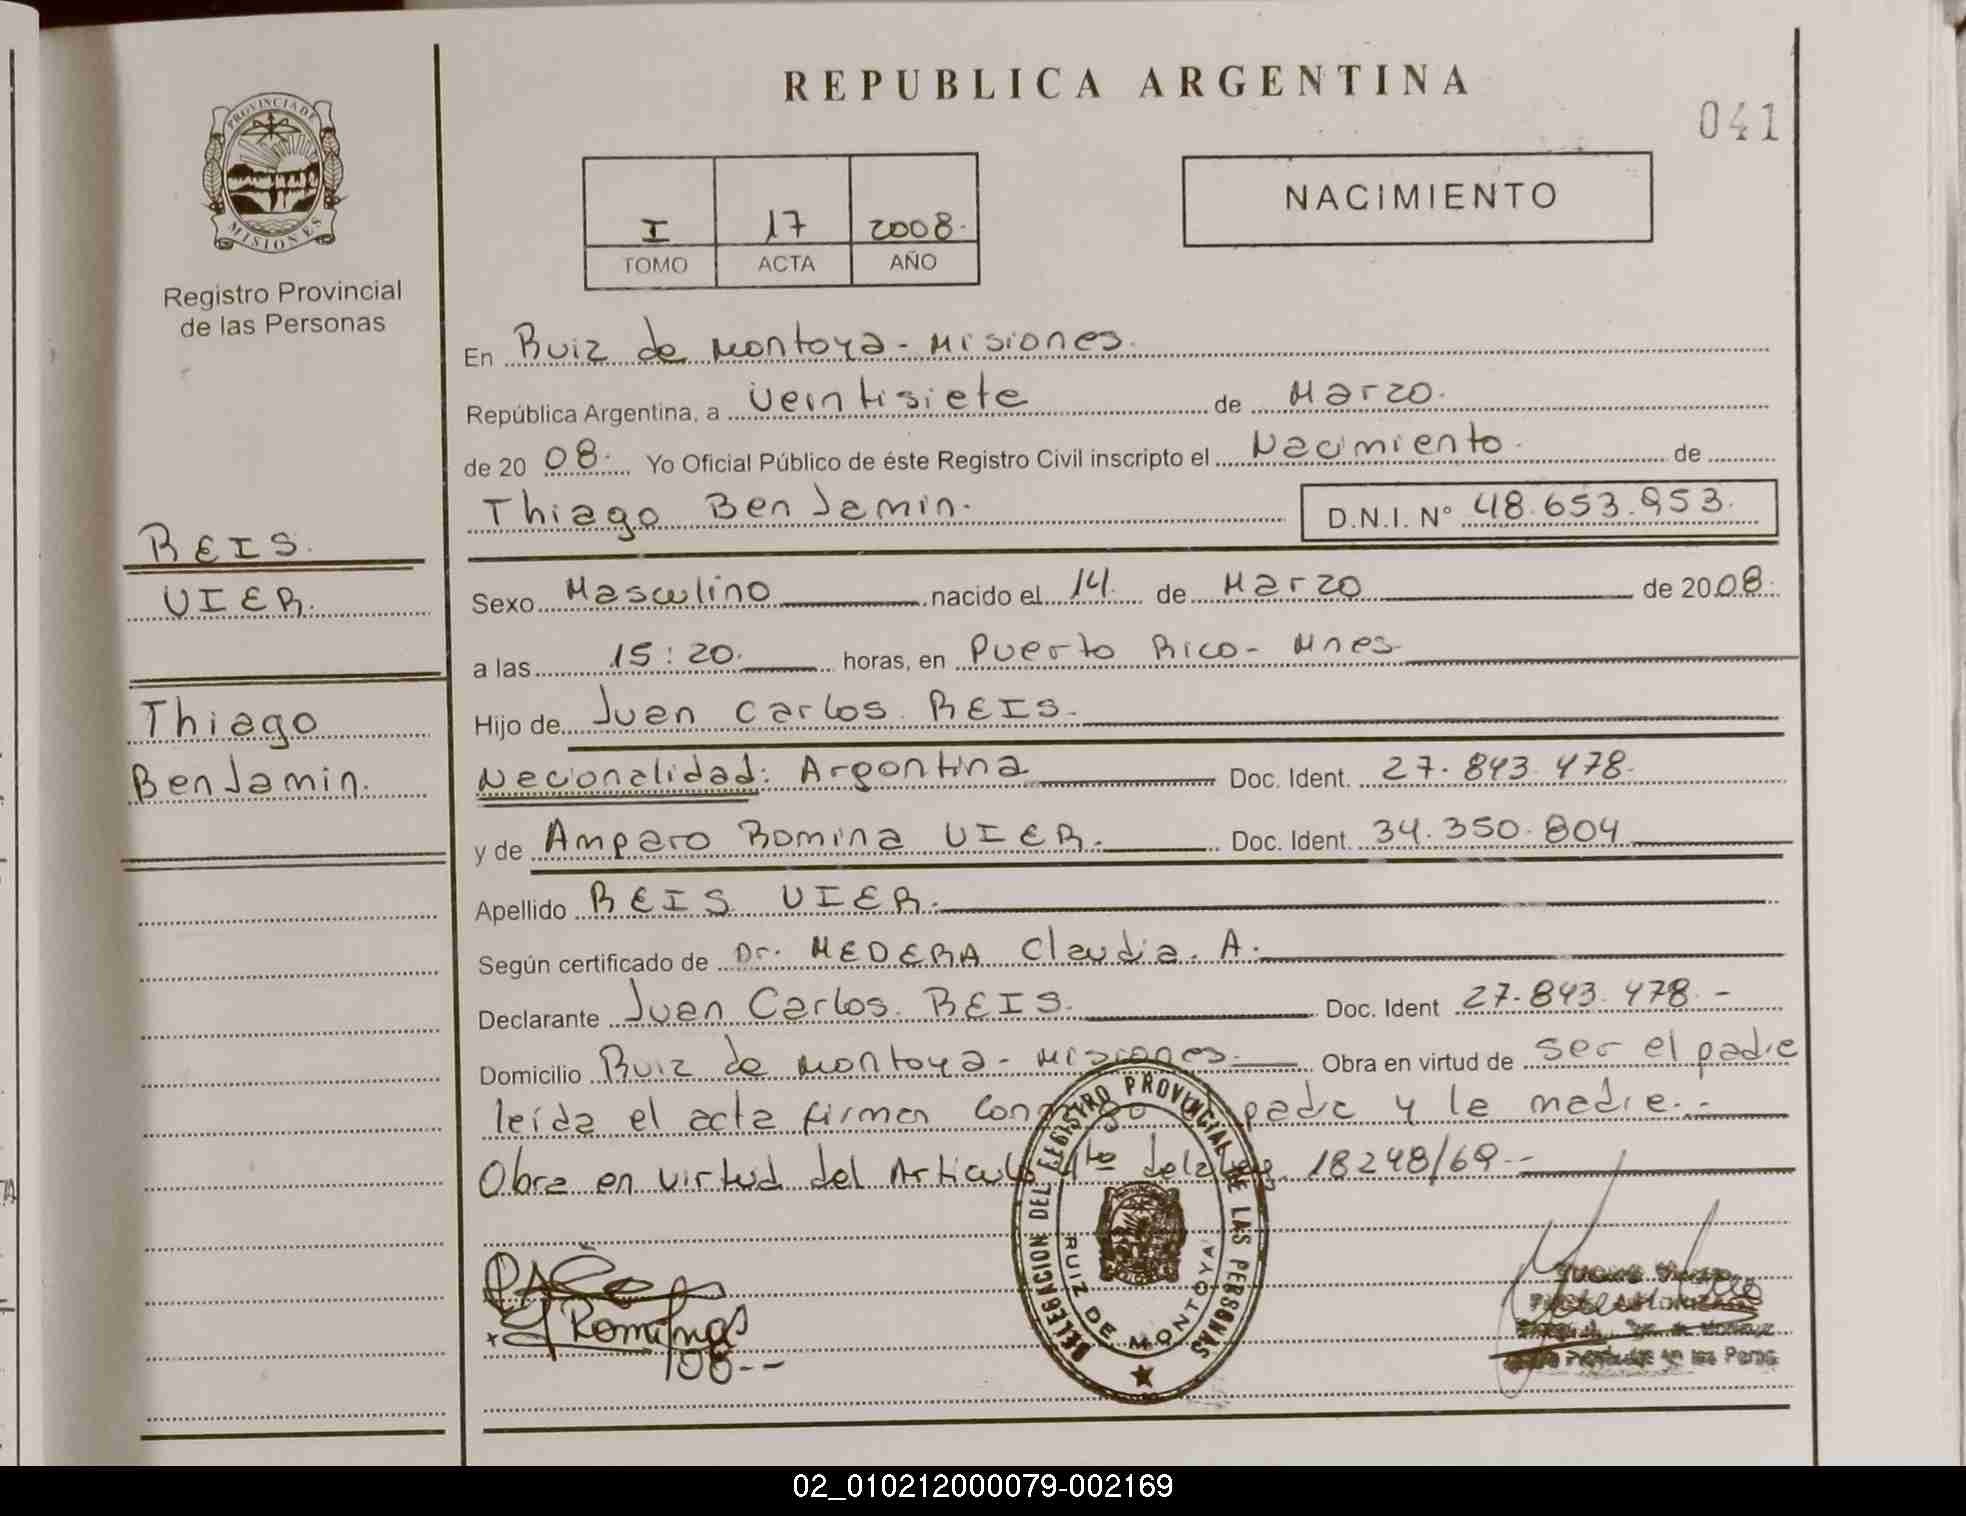 REPUBLICA ARGENTINA
041
PROVINCIA DE
MISIONES
Registro Provincial
de las Personas
I 17 2008.
TOMO ACTA AÑO
NACIMIENTO
En Ruiz de Montoya - Misiones.
República Argentina, a Veintisiete de Marzo.
de 20 08. Yo Oficial Público de éste Registro Civil inscripto el Nacimiento. de
Thiago Benjamin. D.N.I. N° 48.653.953.
REIS.
VIER.
Thiago
Benjamin.
Sexo Masculino nacido el 14 de Marzo de 2008.
a las 15:20. horas, en Puerto Rico - Mnes
Hijo de Juan Carlos REIS.
Nacionalidad: Argentina Doc. Ident. 27.843.478.
y de Amparo Romina VIER. Doc. Ident. 34.350.804
Apellido REIS VIER.
Según certificado de Dr. MEDERA Claudia. A.
Declarante Juan Carlos REIS. Doc. Ident 27.843.478.-
Domicilio Ruiz de Montoya - Misiones. Obra en virtud de ser el padre
leída el acta firman padre y la madre.-
Obra en virtud del Articulo 4to de la Ley 18248/69--
DELEGACION DEL REGISTRO PROVINCIAL DE LAS PERSONAS
RUIZ DE MONTOYA
Romina
108--
02_010212000079-002169